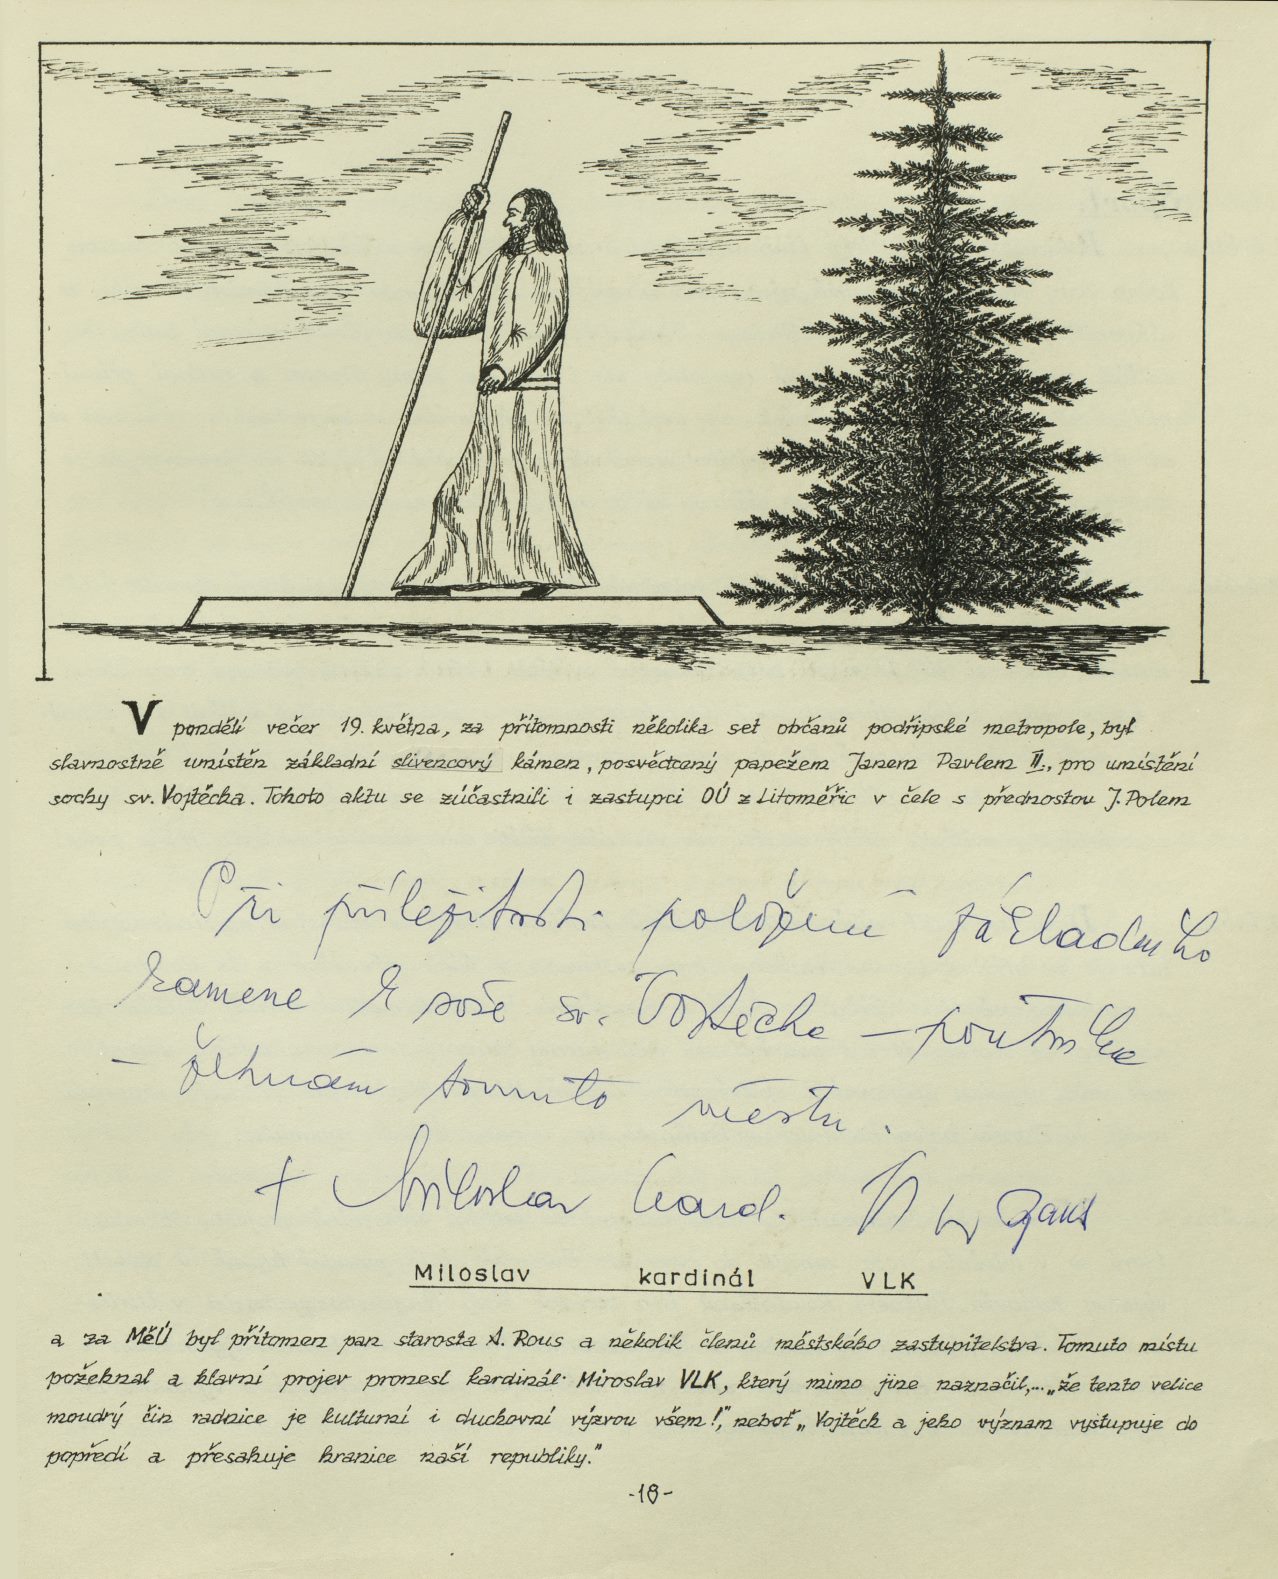 V pondělí večer 19. května, za přítomnosti několika set občanů podřipské metropole, byl
slavnostně umístěn základní slivencový kámen, posvědcený papežem Janem Pavlem II., pro umístění
sochy sv. Vojtěcha. Tohoto aktu se zúčastnili i zastupci OÚ z Litoměřic v čele s přednostou J. Polem
Při příležitosti položení základního
kamene k soše sv. Vojtěcha – poutníka
– žehnám tomuto městu.
+ Miloslav card. Vlk
Miloslav kardinál VLK
a za MěÚ byl přítomen pan starosta A. Rous a několik členů městského zastupitelstva. Tomuto místu
požehnal a hlavní projev pronesl kardinál Miroslav VLK, který mimo jine naznačil,...„že tento velice
moudrý čin radnice je kulturní i duchovní výzvou všem!", neboť „Vojtěch a jeho význam vystupuje do
popředí a přesahuje hranice naší republiky."
-18-